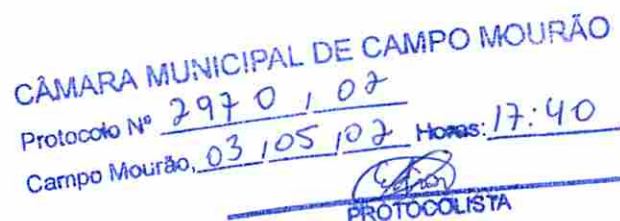 CÂMARA MUNICIPAL DE CAMPO MOURÃO
Protocolo Nº 2970 / 07
Campo Mourão, 03 / 05 / 07 Horas: 17:40
PROTOCOLISTA